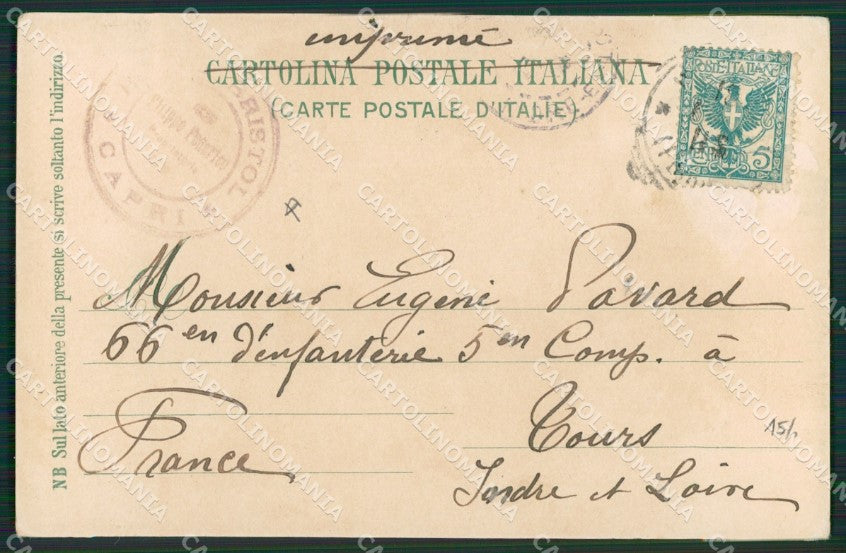 imprimé
CARTOLINA POSTALE ITALIANA
(CARTE POSTALE D'ITALIE)
POSTE ITALIANE
5
BRISTOL
CAPRI
Monsieur Eugène Pavard
66 en d'enfanterie 5 en Comp. à
Tours
France
Indre et Loire
15/
NB Sul lato anteriore della presente si scrive soltanto l'indirizzo
CARTOLINOMANIA